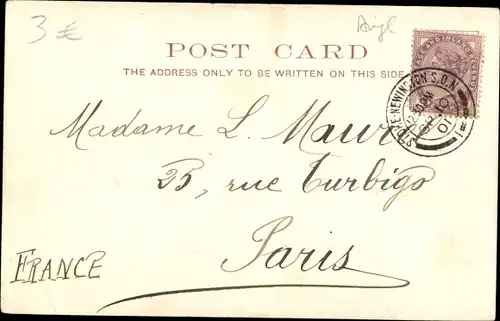 3 €
Angl
POST CARD
THE ADDRESS ONLY TO BE WRITTEN ON THIS SIDE
STOKE-NEWINGTON-S.O.N.
01
Madame L.
25, rue Turbigo
Paris
FRANCE